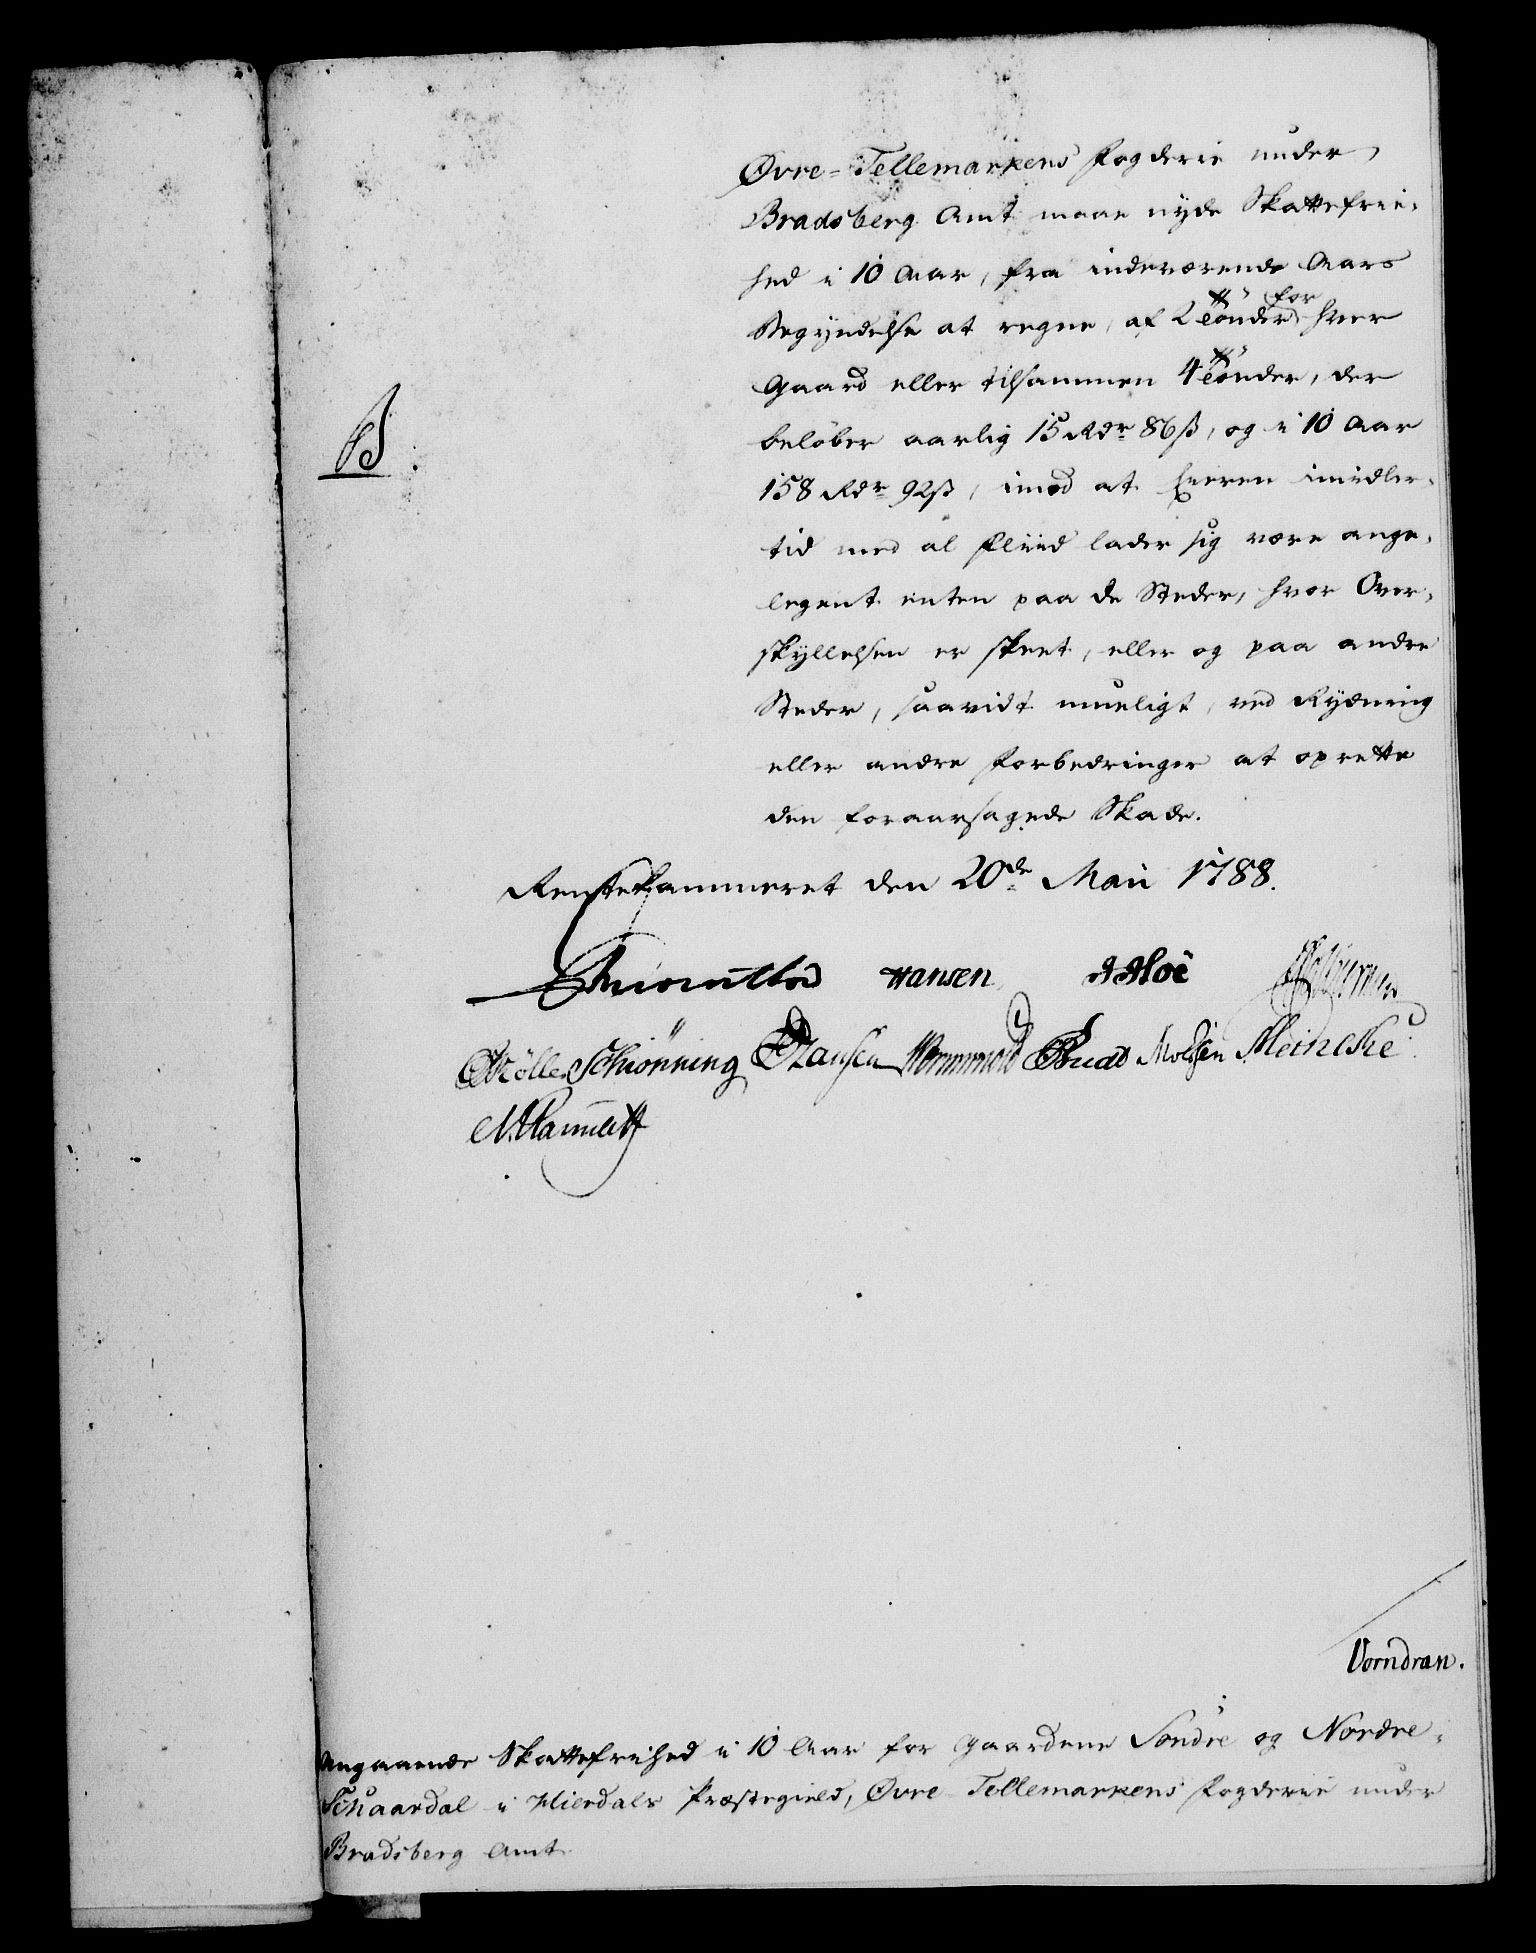 Øvre-Tellemarkens Fogderie under
Bradsberg Amt maae nyde Skattefrie-
hed i 10 Aar, fra indeværende Aars
Begyndelse at regne, af 2 Tönder for hver
Gaard eller tilsammen 4 Tönder, der
beløber aarlig 15 Rdr 86 ß, og i 10 Aar
158 Rdr 92 ß, imod at Eieren imidler-
tid med al Fliid lader sig være ange-
legent enten paa de Steder, hvor Over-
skyllelsen er skeet, eller og paa andre
Steder, saavidt mueligt, ved Rydning
eller andre Forbedringer at oprette
den foraarsagede Skade.
B.
Rentekammeret den 20de Maii 1788.
Hansen AHoë
Möller Schiönning Hansen Wormskiold Budt Molsen Meincke
Vorndran.
Angaaende Skattefrihed i 10 Aar for Gaardene Söndre og Nordre-
Schaardal i Hierdals Præstegield, Øvre Tellemarkens Fogderie under
Bradsberg Amt